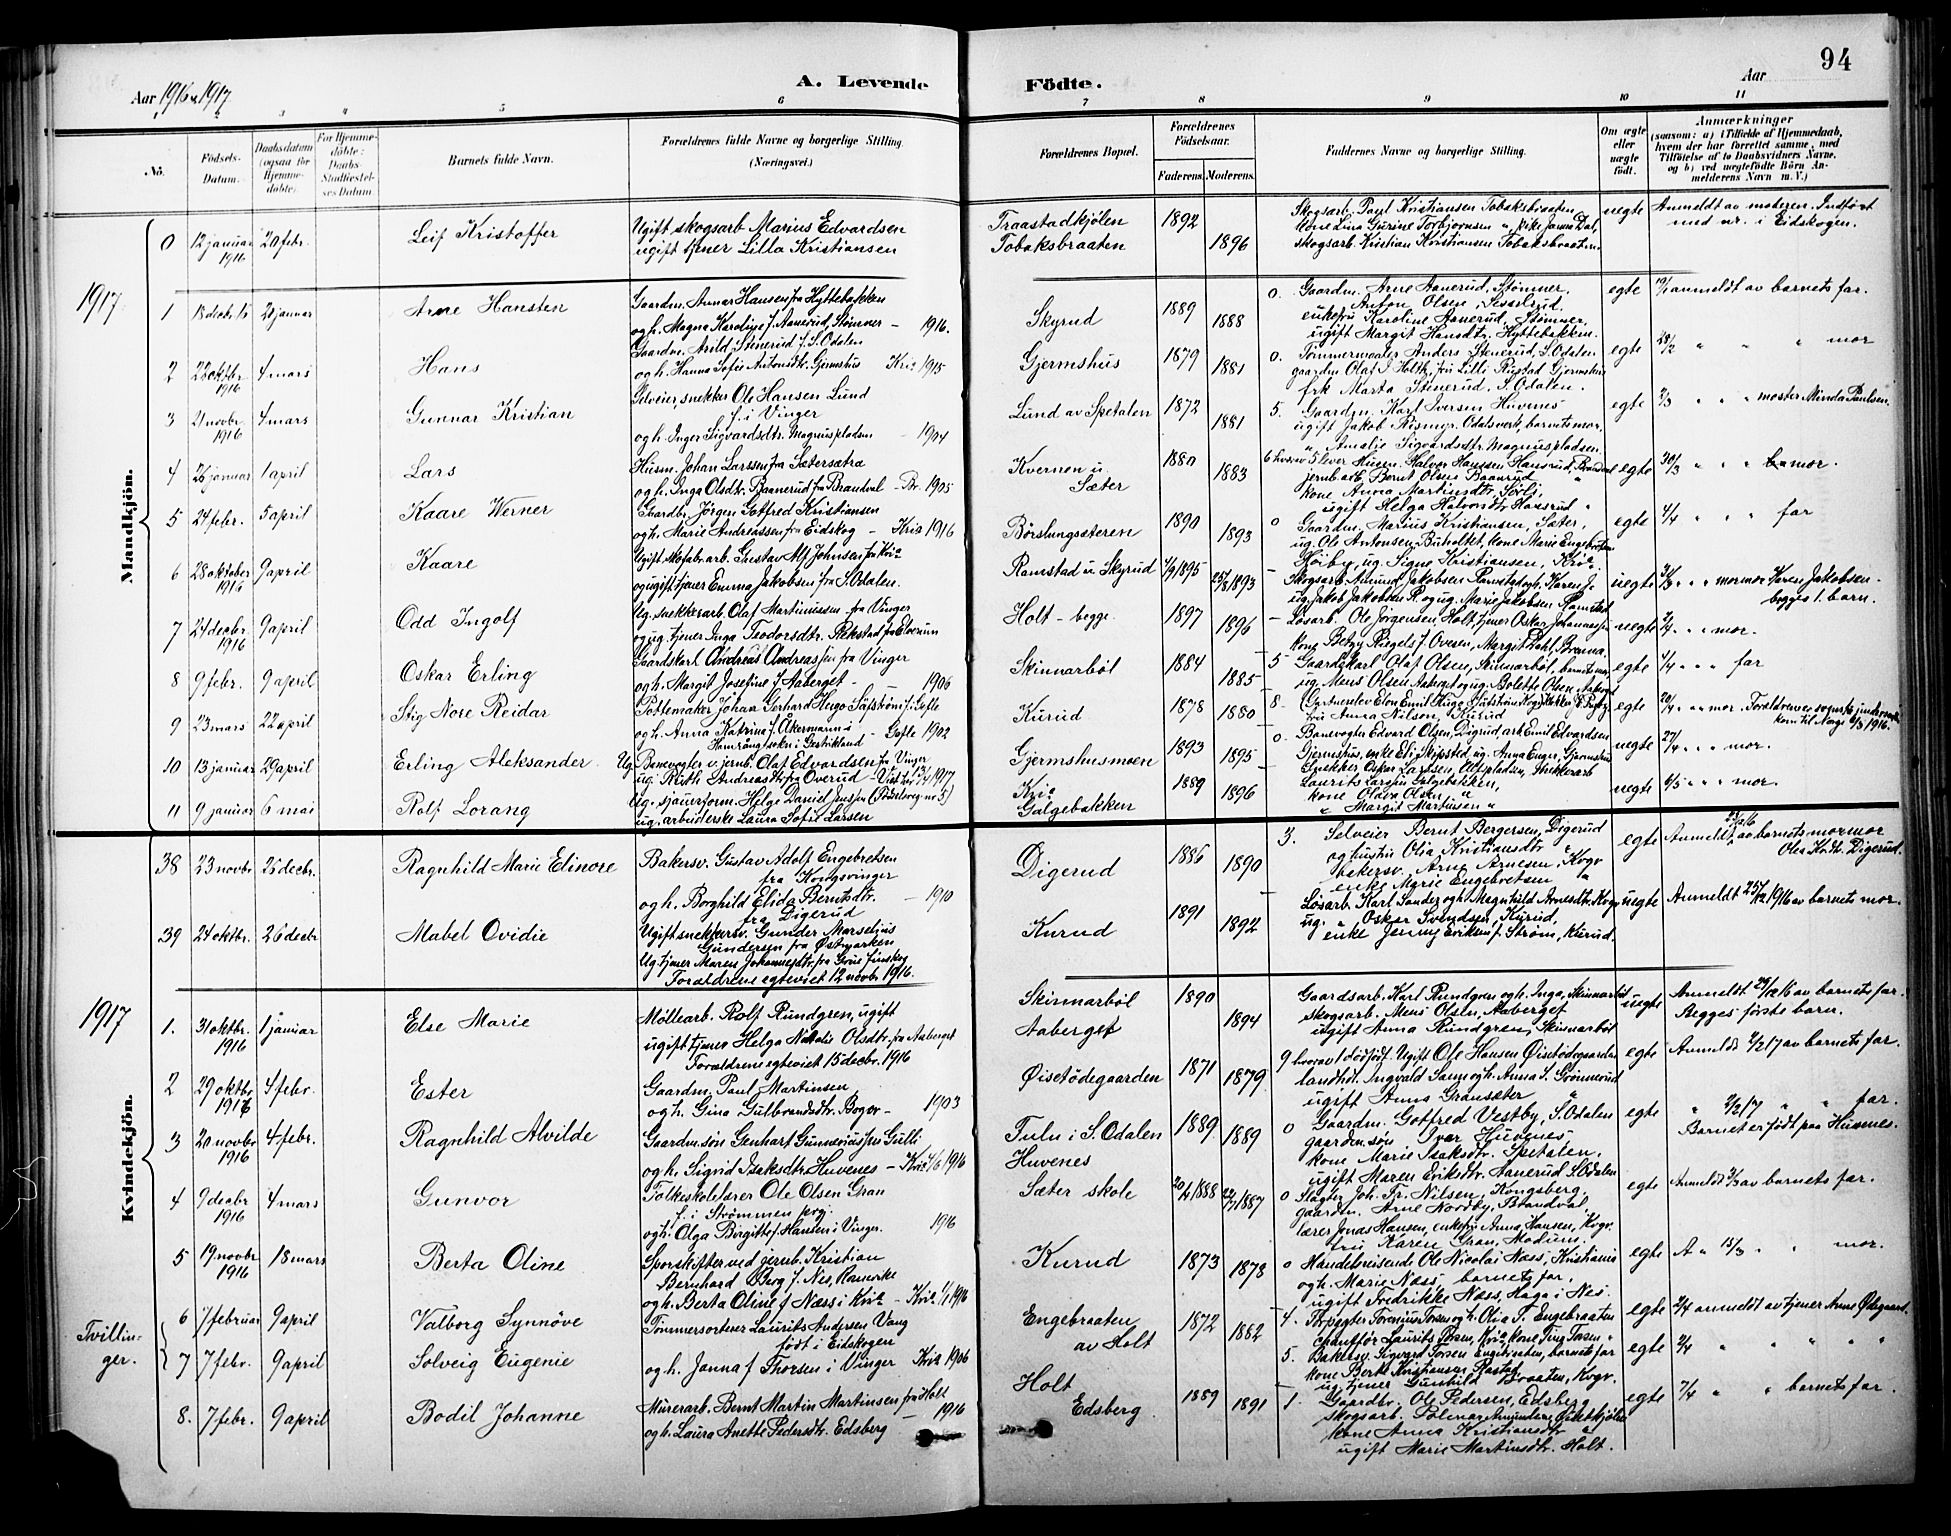 94
Aar 1916 & 1917.
A. Levende Födte.
Aar
1 2 3 4 5 6 7 8 9 10 11
No.
Födsels-Datum.
Daabsdatum (ogsaa for Hjemme-döbte).
For Hjemme-döbte: Daabs-Stadfæstel-ses Datum.
Barnets fulde Navn.
Forældrenes fulde Navne og borgerlige Stilling. (Næringsvei.)
Forældrenes Bopæl.
Forældrenes Födselsaar.
Faderens. Moderens.
Faddernes Navne og borgerlige Stilling.
Om ægte eller uægte födt.
Anmærkninger
(saasom: a) i Tilfælde af Hjemmedaab, hvem der har forrettet samme, med Tilföielse af to Daabsvidners Navne, og b) ved uægtefödte Börn An-melderens Navn m. V.)
Mandkjön.
0 12 januar 1916 20 febr. Leif Kristoffer
Ugift skogsarb Marius Edvardsen
ugift tjener Lilla Kristiansen
Traastadkjølen
Tobaksbraaten
1892 1896
Skogsarb. Paul Kristiansen Tobaksbraaten,
kone Lina Gurine Torbjørnsen
skogsarb. Kristian Kristiansen Tobaksbraaten.
uegte
Anmeldt av moderen. Indført
med nr. i Eidskogen.
1917.
1 18 decbr 16 28 januar Arne Hansten
Gaardm. Annar Hansen fra Hyttebakken
og h. Magna Karoline f. Aanerud, Stømner – 1916.
Skyrud 1889 1888
0. Gaardm. Arne Aanerud, Stømner,
Anton Olsen, Sesselrud,
enkefru Karoline Aanerud, Stømner,
ugift Margit Hansdtr. Hyttebakken.
egte anmeldt av barnets far.
2 28 oktbr 1916 4 mars Hans
Gaardm. Arild Stenerud f. S. Odalen
og h. Hanna Sofie Antonsdtr. Gjermshus Kria 1915
Gjermshus 1879 1881
0. Tømmermaaler Anders Stenerud, S. Odalen
gaardm Olaf S. Holth, fru Lilli Rustad Gjermshus
frk Marta Stenerud, S. Odalen.
egte 28/2 " " " mor
3 21 novbr 1916 4 mars Gunnar Kristian
Selveier, snekker Ole Hansen Lund
f. i Vinger
og h. Inger Sigvardsdtr. Magnuspladsen – 1904
Lund av Spetalen 1872 1881
5. Gaardm. Karl Iversen Huvenes
ugift Jakob Rismyr, Odalsverk, barnets mor,
" Amalie Sigvardsdtr Magnuspladsen.
egte 2/3 " " " moster Minda Paulsen.
4 26 januar 1 april Lars
Husm. Johan Larssen fra Sætersætra
og h. Inga Olsdtr. Baanerud fra Brandval – Br. 1905
Kvernen u. Sæter 1880 1883
6 hvorav 5 lever Husm. Halvor Hanssen Hansrud, Brandval
jernb. arb. Bernt Olsen Baanrud "
kone Anna Martinsdtr. Sørli,
ugift Helga Halvorsdtr Hansrud "
egte 30/3 " " " mor.
5 24 febr. 5 april Kaare Werner
Gaardbr. Jörgen Gotfred Kristiansen
og h. Marie Andreassen fra Eidskog – Kria 1916
Børslungsæteren 1890 1893
0 Gaardm. Marius Kristiansen, Sæter,
ug. Ole Antonsen Buholtet, kone Marie Engebretsen
Høiby, ug. Signe Kristiansen, Kria.
egte 4/4 " " " far
6 28 oktober 1916 9 april Kaare
Ugift skofabr. arb. Gustav Alf Johnsen fra Kria
og ugift tjener Emma Jakobsen fra S. Odalen.
Ramstad u Skyrud 4/9 1895 25/8 1893
– Skogsarb. Amund Jakobsen Ramstad og h. Karen J.
ug. Jakob Jakobsen R. og ug. Marie Jakobsen Ramstad
uegte 31/3 " " " mormor Karen Jakobsen –
begges 1. barn.
7 24 decbr. 1916 9 april Odd Ingolf
Ug. snekkerarb. Olaf Martinussen fra Vinger
og ug. tjener Inga Teodorsdtr. Rekstad fra Elverum
Holt – begge. 1897 1896
– Løsarb. Ole Jørgensen, Holt, tjener Oskar Johannessen
kone Betzy Riegels f. Oversen, Margit Dahl, Brenna.
uegte 2/4 " " " mor.
8 9 febr. 9 april Oskar Erling
Gaardskarl Andreas Andreassen fra Vinger
og h. Margit Josefine f. Aaberget – 1906
Skinnarbøl 1884 1885
5 Gaardskarl Olaf Olsen, Skinnarbøl, barnets mor,
ug. Mens Olsen Aaberget og ug. Bolette Olsen Aaberget
egte 4/4 " " " far
9 23 mars 22 april Stig Nore Reidar
Pottemaker Johan Gerhard Hugo Säfström f. i Gefle
og h. Anna Katrina f. Åkermann i
Hamrånge sokn i Gestrikland – Gefle 1902
Kurud 1878 1880
8 –
fru Anna Nilson, Kurud
egte 20/4 " " " mor. Forældrene er svenske undersaatter
kom til Norge 1916.
10 13 januar 29 april Erling Aleksander.
Ug. Banevogter v. jernb. Olaf Edvardsen fra Vinger
ug. Ruth Andreasdtr fra Overud – Viet 1917
Gjermshusmoen 1893 1895
0. Banevogter Edvard Olsen, Digrud, arb Emil Edvardsen
Gjermshus, enke Eli Skipstad, ug. Anna Enger, Gjermshus
uegte 27/4 " " " mor.
11 9 januar 6 mai Rolf Lorang
Ug. sjauerform. Helge Daniel Jensen (Fødselsveg nr 5)
ug. arbeiderske Laura Sofie Larsen
Kria
Galgebakken 1889 1896
Snekker Oskar Larssen, Østpladsen, Snekkerarb
Laurits Larssen Galgebakken,
kone Oldea Olsen "
" Margit Martinsen "
uegte 6/5 " " " mor.
Kvindekjön.
38 23 novbr 25 decbr. Ragnhild Marie Elinore
Bakersv. Gustav Adolf Engebretsen
fra Kongsvinger
og h. Borghild Elida Berntsdtr. – 1910
fra Digerud
Digerud 1886 1890
3. Selveier Bernt Bergersen, Digerud
og hustru Olia Kristiansdtr "
bakersv. Arne Arnesen, Kvgv
enke Marie Engebretsen "
egte
Anmeldt av barnets mormor
Olea Kr.dtr. Digerud.
39 24 oktbr. 26 decbr Mabel Ovidie
Ugift snekkersv. Gunder Marselius
Gundersen fra Østmarken
Ug. tjener Maren Johannesdtr. fra Grue Finskog
Forældrene egteviet 12 novbr 1916.
Kurud 1891 1892
– Løsarb. Karl Sander og h. Magnhild Arnesdtr. Kvgv
ug. " Oskar Svendsen, Kurud,
enke Jenny Eriksen f. Strøm, Kurud.
uegte Anmeldt 25/12 1916 av barnets mor.
1917
1. 31 oktbr. 1916 1 januar Else Marie
Møllearb. Rolf Rundgren, ugift
ugift tjener Helga Natalie Olsdtr. fra Aaberget
Forældrene egteviet 15 decbr. 1916
Skinnarbøl
Aaberget
1890 1894
Gaardsarb. Karl Rundgren og h. Inga, Skinnarbøl
skogsarb. Mens Olsen, Aaberget
ugift Anna Rundgren, Skinnarbøl
uegte Anmeldt 29/12 16 av barnets far.
Begges første barn.
2 29 oktbr 1916 4 febr. Ester
Gaardm. Paul Martinsen
og h. Gina Gulbrandsdtr. Boger – 1903
Øisetødegaarden 1871 1879
9 hvorav 1 dødfødt. Ugift Ole Hansen Øisetødegaarden
landhdl. Ingvald Sann og h. Anna f. Grønnerud
ugift Anna Gransæter "
egte Anmeldt 2/2 17 av barnets far.
3 20 novbr 1916 4 febr. Ragnhild Alvilde
Gaardm. søn Genhart Gunneriussen Gulli
og h. Sigrid Isaksdtr. Huvenes – Kria 4/6 1916
Tuln i S. Odalen
Huvenes
1889 1889
0 Gaardm. Gotfred Vestby, S. Odalen
gaardm. søn Ivar Huvenes
kone Marie Isaksdtr. Spetalen.
ugift Maren Eriksdtr. Aanerud S. Odalen
egte " 2/2 17 " " far.
Barnet er født paa Huvenes.
4 9 decbr 1916 4 mars Gunvor
Folkeskolelærer Ole Olsen Gran
f. i Strømmen prg.
og h. Olga Birgitte f. Hansen i Vinger. 1916
Sæter skole 1888 1887
0 Slagter Joh. Fr. Nilsen, Kongsberg.
gaardm. Arne Nordby, Brandval,
lærer Jonas Hansen, enkefru Anna Hansen, Kvgv.
fru Karen Gran, Modum.
egte Anmeldt 2/3 av barnets far.
5 19 novbr 1916 18 mars Berta Oline
Sporskifter ved jernb. Kristian
Bernhard Berg f. Nes, Romerike
og h. Berta Oline f. Næss i Kria – Kria 1/1 1916
Kurud 1873 1878
0 Handelsreisende Ole Nicolai Næss, Kristiania
og h. Marie Næss, barnets far.
ugift Fredrikke Næss, Haga i Nes.
egte A " 15/3 " " mor.
Tvillin-
ger.
6 7 februar 9 april Valborg Synnöve
Tømmersorterer Laurits Andersen Vang
født i Eidskogen
og h. Janna f. Thorsen i Vinger Kria 1906
Engebraaten
av Holt
1872 1882
4. Forpagter Torenius Torsen og h. Olia T. Engebraaten
chauffør Laurits Torsen, Kria,
egte 2/4 anmeldt av tjener Anne Ødegaard.
7 7 febr. 9 april Solveig Eugenie
5. Bakersv. Sigvard Torsen Engebraaten, barnets far
kone Berte Kristiansen Rastad
ug tjener Gunhild Braaten, Kvgv.
egte 2/4 " " " "
8. 7 febr. 9 april Bodil Johanne
Murerarb. Bernt Martin Martinsen fra Holt
og h. Laura Anette Pedersdtr. Edsberg – 1916
Holt
Edsberg
1889 1891
1. Gaardbr. Ole Pedersen, Edsberg,
skogsarb.
kone Anna Kristiansdtr "
ugift Marie Martinsdtr. Holt.
egte 7/4 " " barnets far.